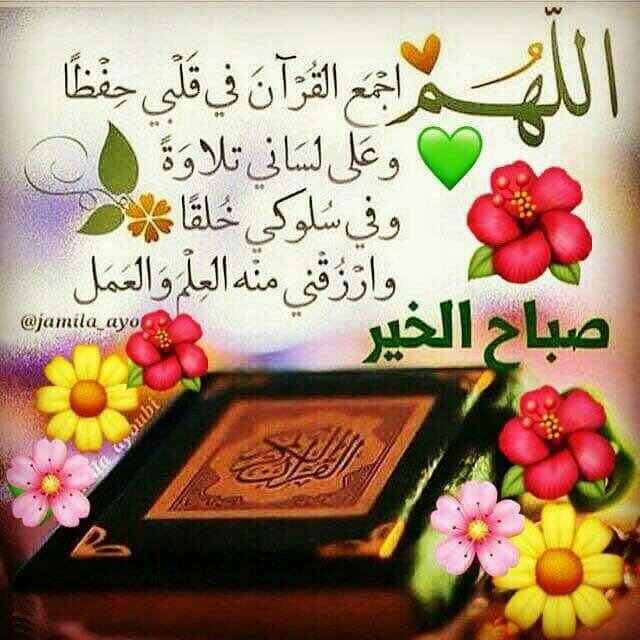 اللّهُم اجْمَع القُرْآنَ في قَلْبي حِفْظًا
وعَلى لسَاني تلاوَةً
وفي سُلوكي خُلقًا
وارْزُقْني منْه العِلْمَ وَالعَمَل
@jamila_ayo
صباح الخير
القرآن الكريم